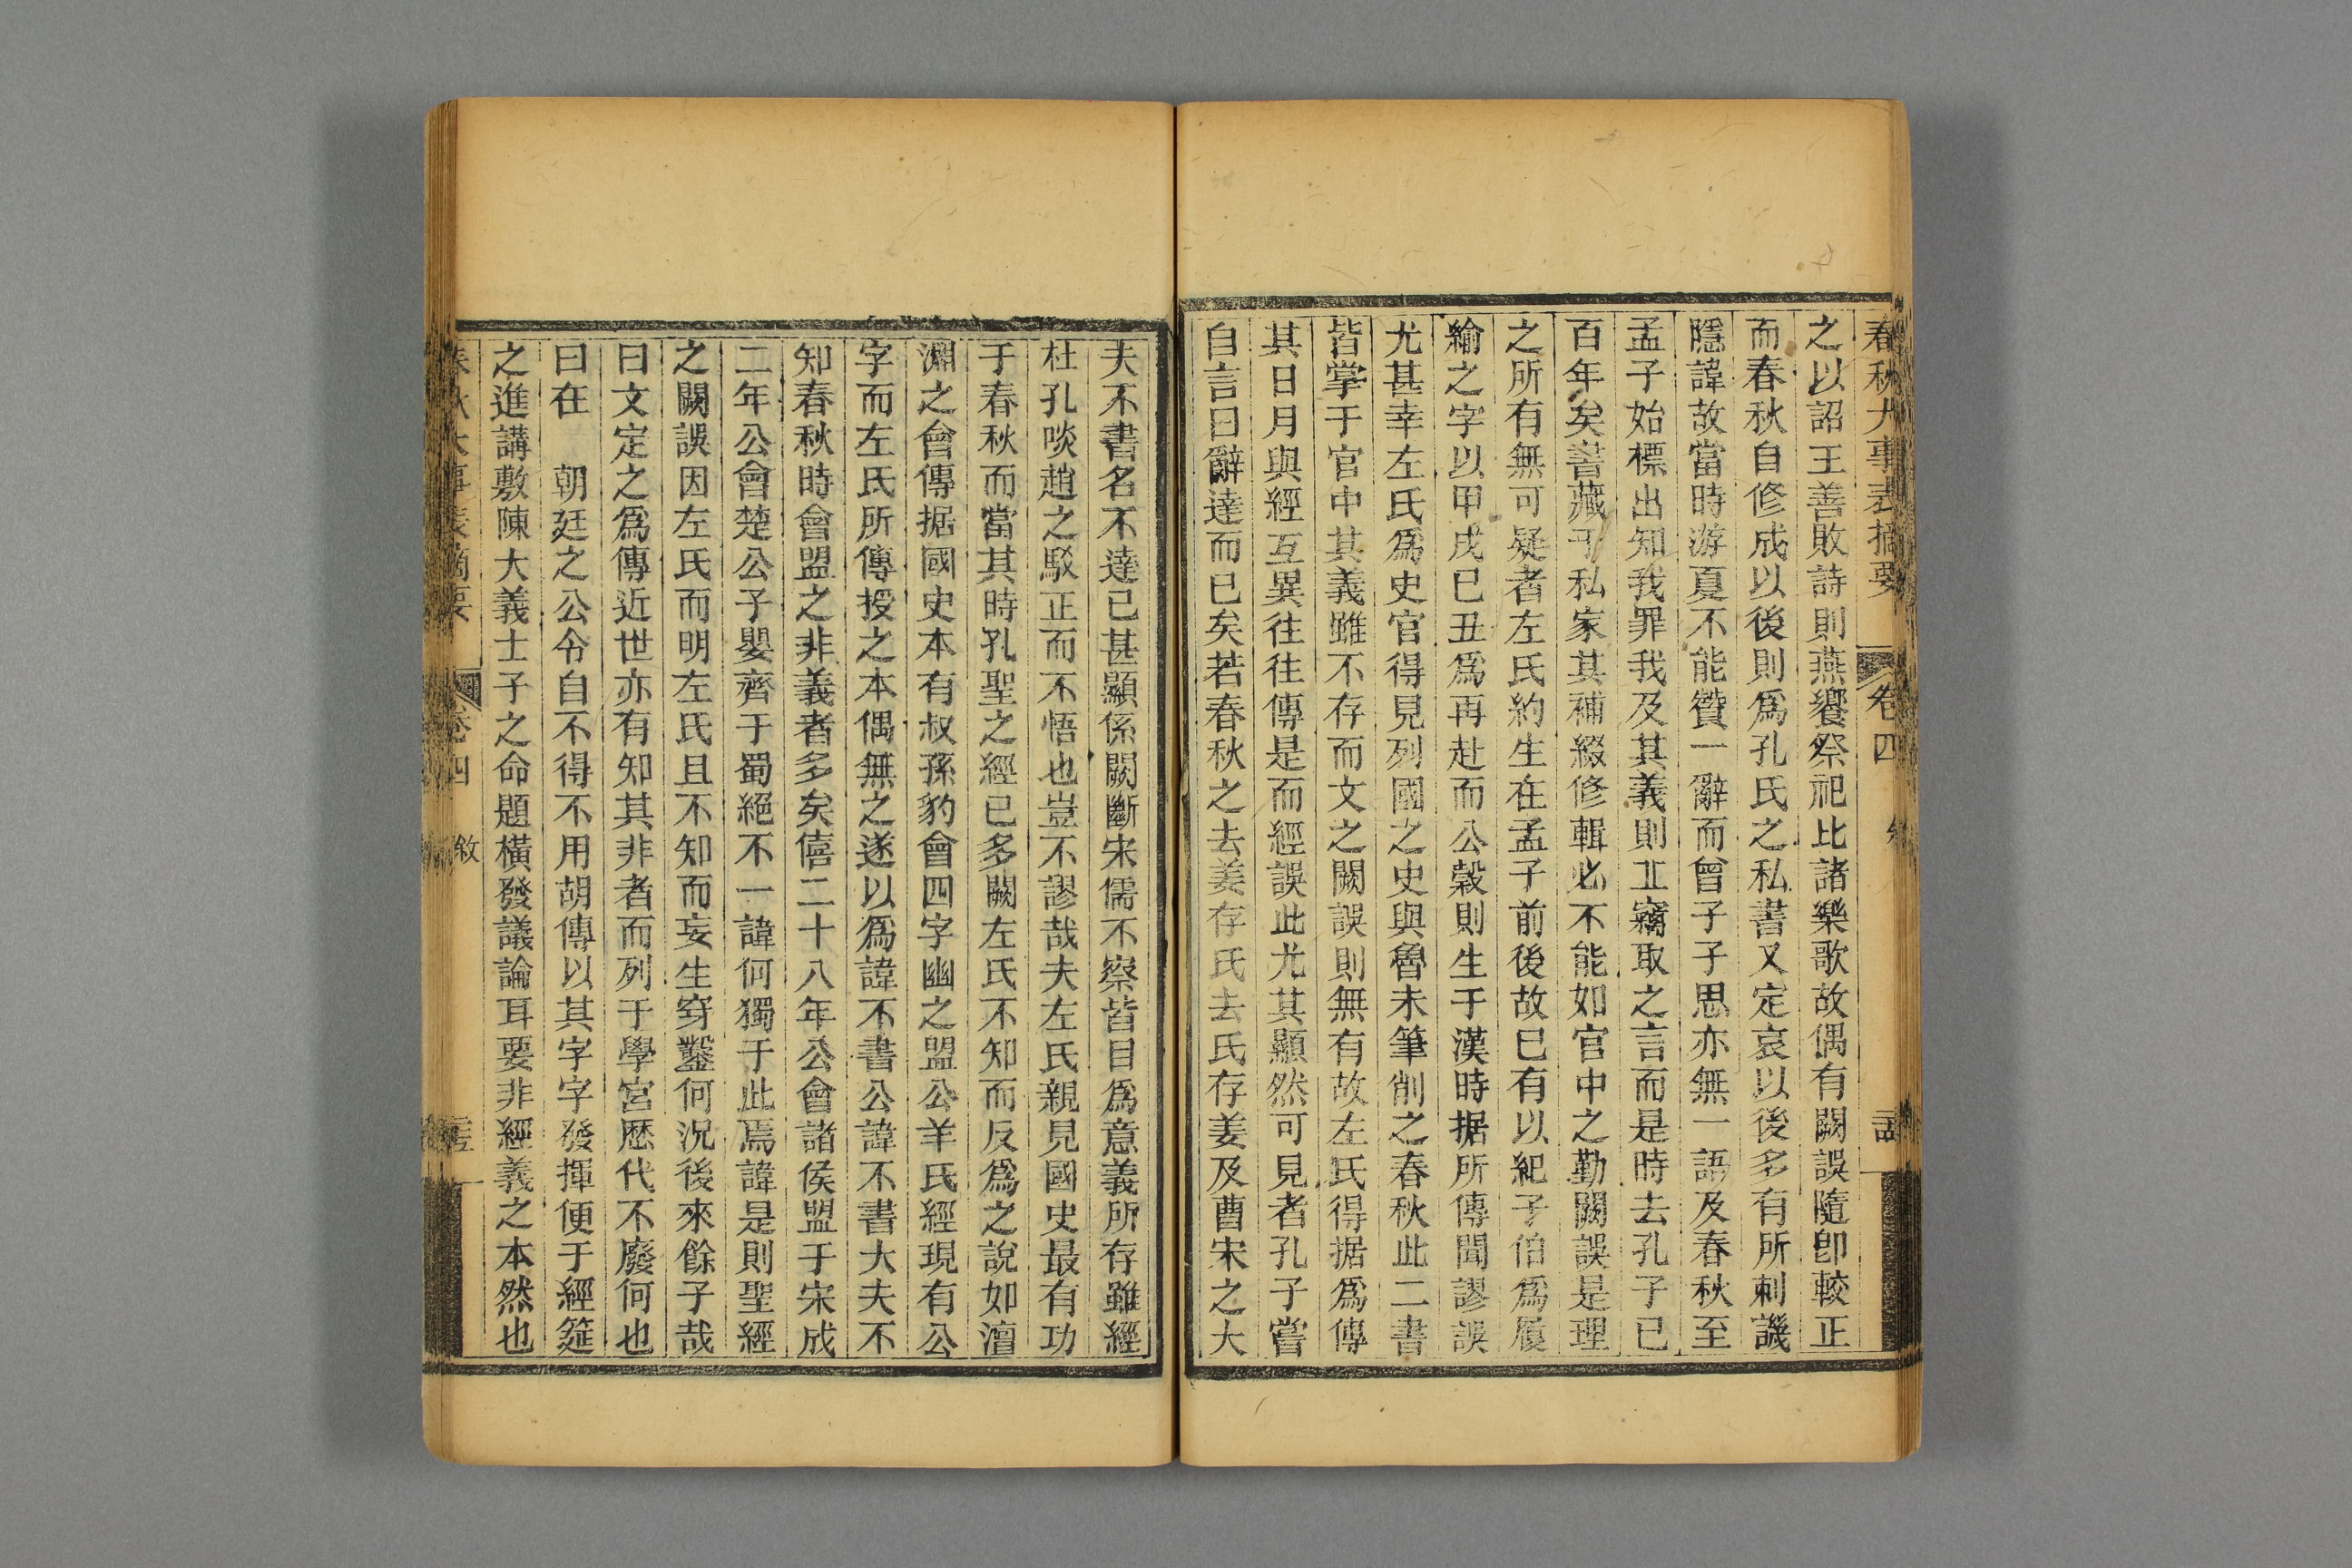 春秋大事表摘要 卷四
之以詔王善敗詩則燕饗祭祀比諸樂歌故偶有闕誤隨卽較正
而春秋自修成以後則爲孔氏之私書又定哀以後多有所刺譏
隱諱故當時游夏不能贊一辭而曾子子思亦無一語及春秋至
孟子始標出知我罪我及其義則丘竊取之言而是時去孔子已
百年矣書藏于私家其補綴修輯必不能如官中之勤闕誤是理
之所有無可疑者左氏約生在孟子前後故已有以紀子伯爲履
緰之字以甲戌己丑爲再赴而公穀則生于漢時据所傳聞謬誤
尤甚幸左氏爲史官得見列國之史與魯未筆削之春秋此二書
皆掌于官中其義雖不存而文之闕誤則無有故左氏得据爲傳
其日月與經互異往往傳是而經誤此尤其顯然可見者孔子嘗
自言曰辭達而已矣若春秋之去姜存氏去氏存姜及曹宋之大
夫不書名不達已甚顯係闕斷宋儒不察皆目爲意義所存雖經
杜孔啖趙之駁正而不悟也豈不謬哉夫左氏親見國史最有功
于春秋而當其時孔聖之經已多闕左氏不知而反爲之說如澶
淵之會傳据國史本有叔孫豹會四字幽之盟公羊氏經現有公
字而左氏所傳授之本偶無之遂以爲諱不書公諱不書大夫不
知春秋時會盟之非義者多矣僖二十八年公會諸侯盟于宋成
二年公會楚公子嬰齊于蜀絕不一諱何獨于此焉諱是則聖經
之闕誤因左氏而明左氏且不知而妄生穿鑿何況後來餘子哉
曰文定之爲傳近世亦有知其非者而列于學宮歷代不廢何也
曰在 朝廷之公令自不得不用胡傳以其字字發揮便于經筵
之進講敷陳大義士子之命題橫發議論耳要非經義之本然也
春秋大事表摘要 卷四 敘